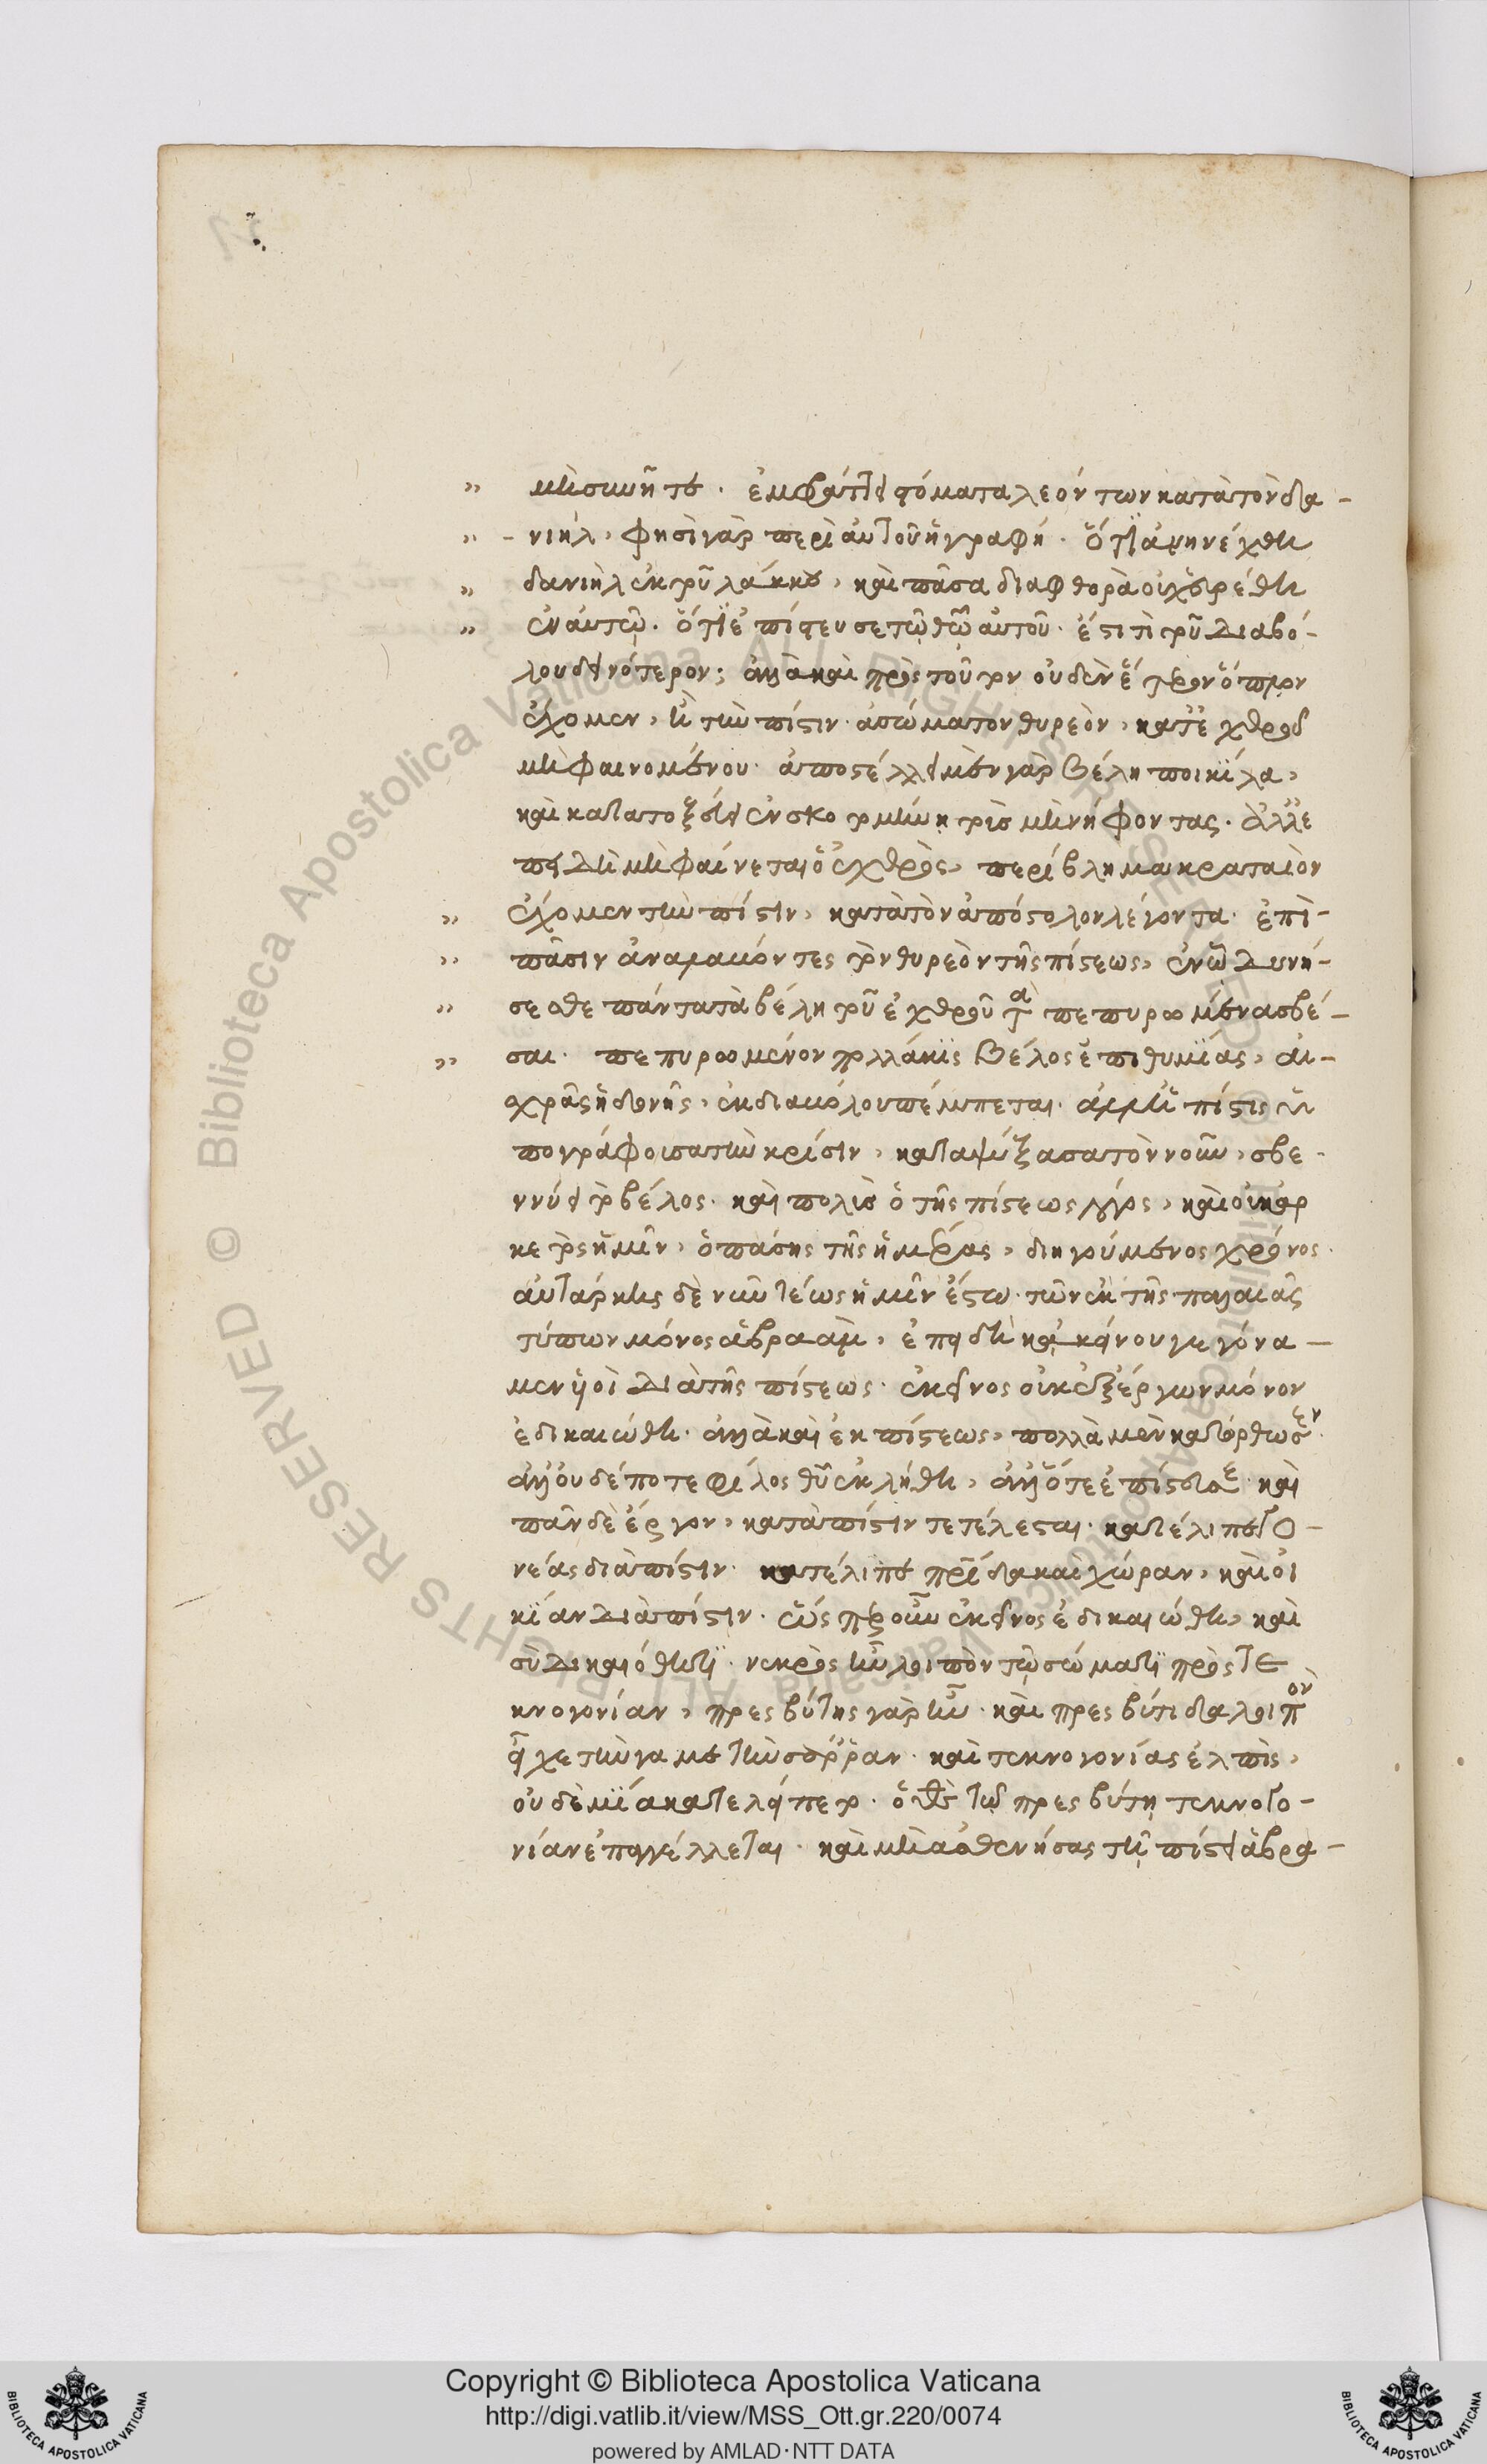 μὴ συνῆτε. ἐμφράττει στόματα λεόντων κατὰ τὸν δα-
νιήλ, φησὶ γὰρ περὶ αὐτοῦ ἡ γραφή. ὅτι ἀνηνέχθη
δανιὴλ ἐκ τοῦ λάκκου, καὶ πᾶσα διαφθορὰ οὐχ εὑρέθη
ἐν αὐτῷ. ὅτι ἐπίστευσε τῷ θῶ αὐτοῦ. ἔστι τὶ τοῦ διαβό-
λου δεινότερον; ἀλλὰ καὶ πρὸς τοῦτον οὐδὲν ἕτερον ὅπλον
ἔχομεν, ἢ τὴν πίστιν. ἀσώματον θυρεὸν, κατ' ἐχθροῦ
μὴ φαινομένου. ἀποστέλλει μὲν γὰρ βέλη ποικίλα,
καὶ κατατοξεύει ἐν σκοτομήνῃ τοὺς μὴ νήφοντας. ἀλλ' ἐ
πειδὴ μὴ φαίνεται ὁ ἐχθρὸς, περίβλημα κραταιὸν
ἔχομεν τὴν πίστιν, κατὰ τὸν ἀπόστολον λέγοντα. ἐπὶ-
πᾶσιν ἀναλαβόντες τὸν θυρεὸν τῆς πίστεως, ἐν ᾧ δυνή-
σεσθε πάντα τὰ βέλη τοῦ ἐχθροῦ τὰ πεπυρωμένα σβέ-
σαι. πεπυρωμένον πολλάκις βέλος ἐπιθυμίας, αἰ-
σχρᾶς ἡδονῆς, ἐκ διαβόλου πέμπεται. ἀλλ' ἡ πίστις ὑ
πογράφουσα τὴν κρίσιν, καταψύξασα τὸν νοῦν, σβε-
ννύει τὸ βέλος. καὶ πολὺς ὁ τῆς πίστεως λόγος, καὶ οὐκ ἀρ
κέσει ἡμῖν, ὁ πάσης τῆς ἡμέρας, διηγούμενος χρόνος.
αὐτάρκης δὲ νῦν τέως ἡμῖν ἔστω. τῶν ἐκ τῆς παλαιᾶς
τύπων μόνος ἀβραὰμ, ἐπειδὴ κἀκείνου γεγόνα-
μεν ὑιοὶ διὰ τῆς πίστεως. ἐκεῖνος οὐκ ἐξ ἔργων μόνον
ἐδικαιώθη. ἀλλὰ καὶ ἐκ πίστεως, πολλὰ μὲν κατόρθωσεν.
ἀλλ' οὐδέποτε φίλος θυ ἐκλήθη, ἀλλ' ὅτε ἐπίστευσε. καὶ
πᾶν δὲ ἔργον, κατὰ πίστιν τετέλεσται. κατέλιπε γο-
νέας διὰ πίστιν. κατέλιπε πρίδα καὶ χώραν, καὶ οἰ
κίαν διὰ πίστιν. ὥσπερ οὖν ἐκεῖνος ἐδικαιώθη, καὶ
σὺ δικαιώθητι. νεκρὸς ἦν λοιπὸν τῷ σώματι πρὸς τε
κνογονίαν, πρεσβύτης γὰρ ἦν. καὶ πρεσβύτιδα λοιπὸν
εἶχε τὴν γαμετὴν σάρραν. καὶ τεκνογονίας ἐλπὶς,
οὐδὲ μία κατελείπετο. ὁ θς τῷ πρεσβύτῃ τεκνογο-
νίαν ἐπαγγέλλεται. καὶ μὴ ἀσθενήσας τῇ πίστει ἀβρα-
Copyright © Biblioteca Apostolica Vaticana
http://digi.vatlib.it/view/MSS_Ott.gr.220/0074
powered by AMLAD·NTT DATA